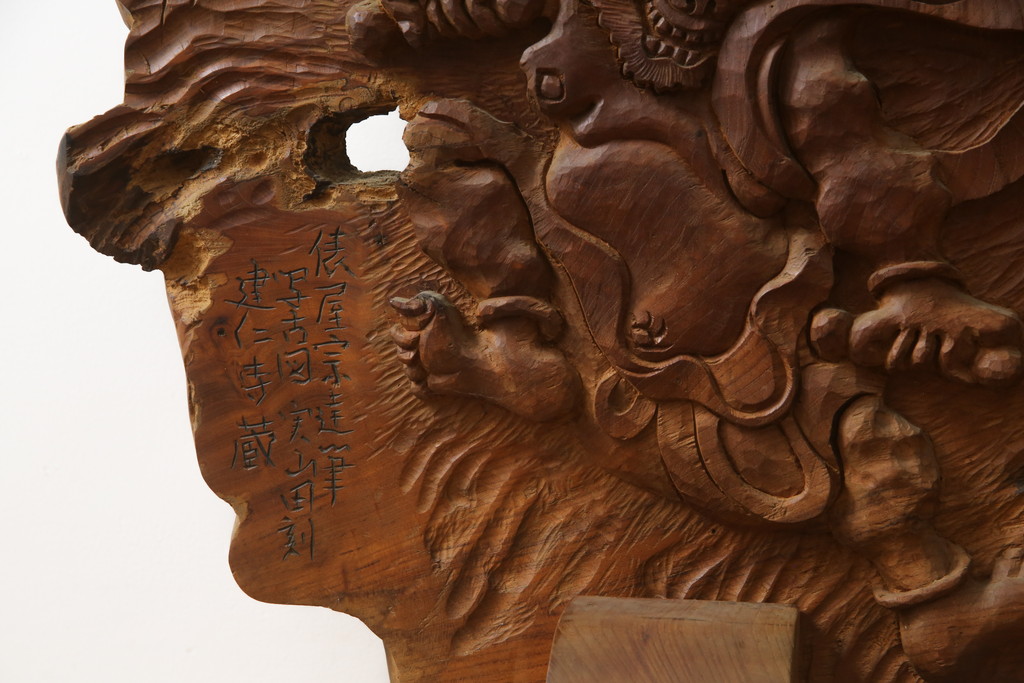 俵屋宗達筆
古図 実山田刻
建仁寺蔵